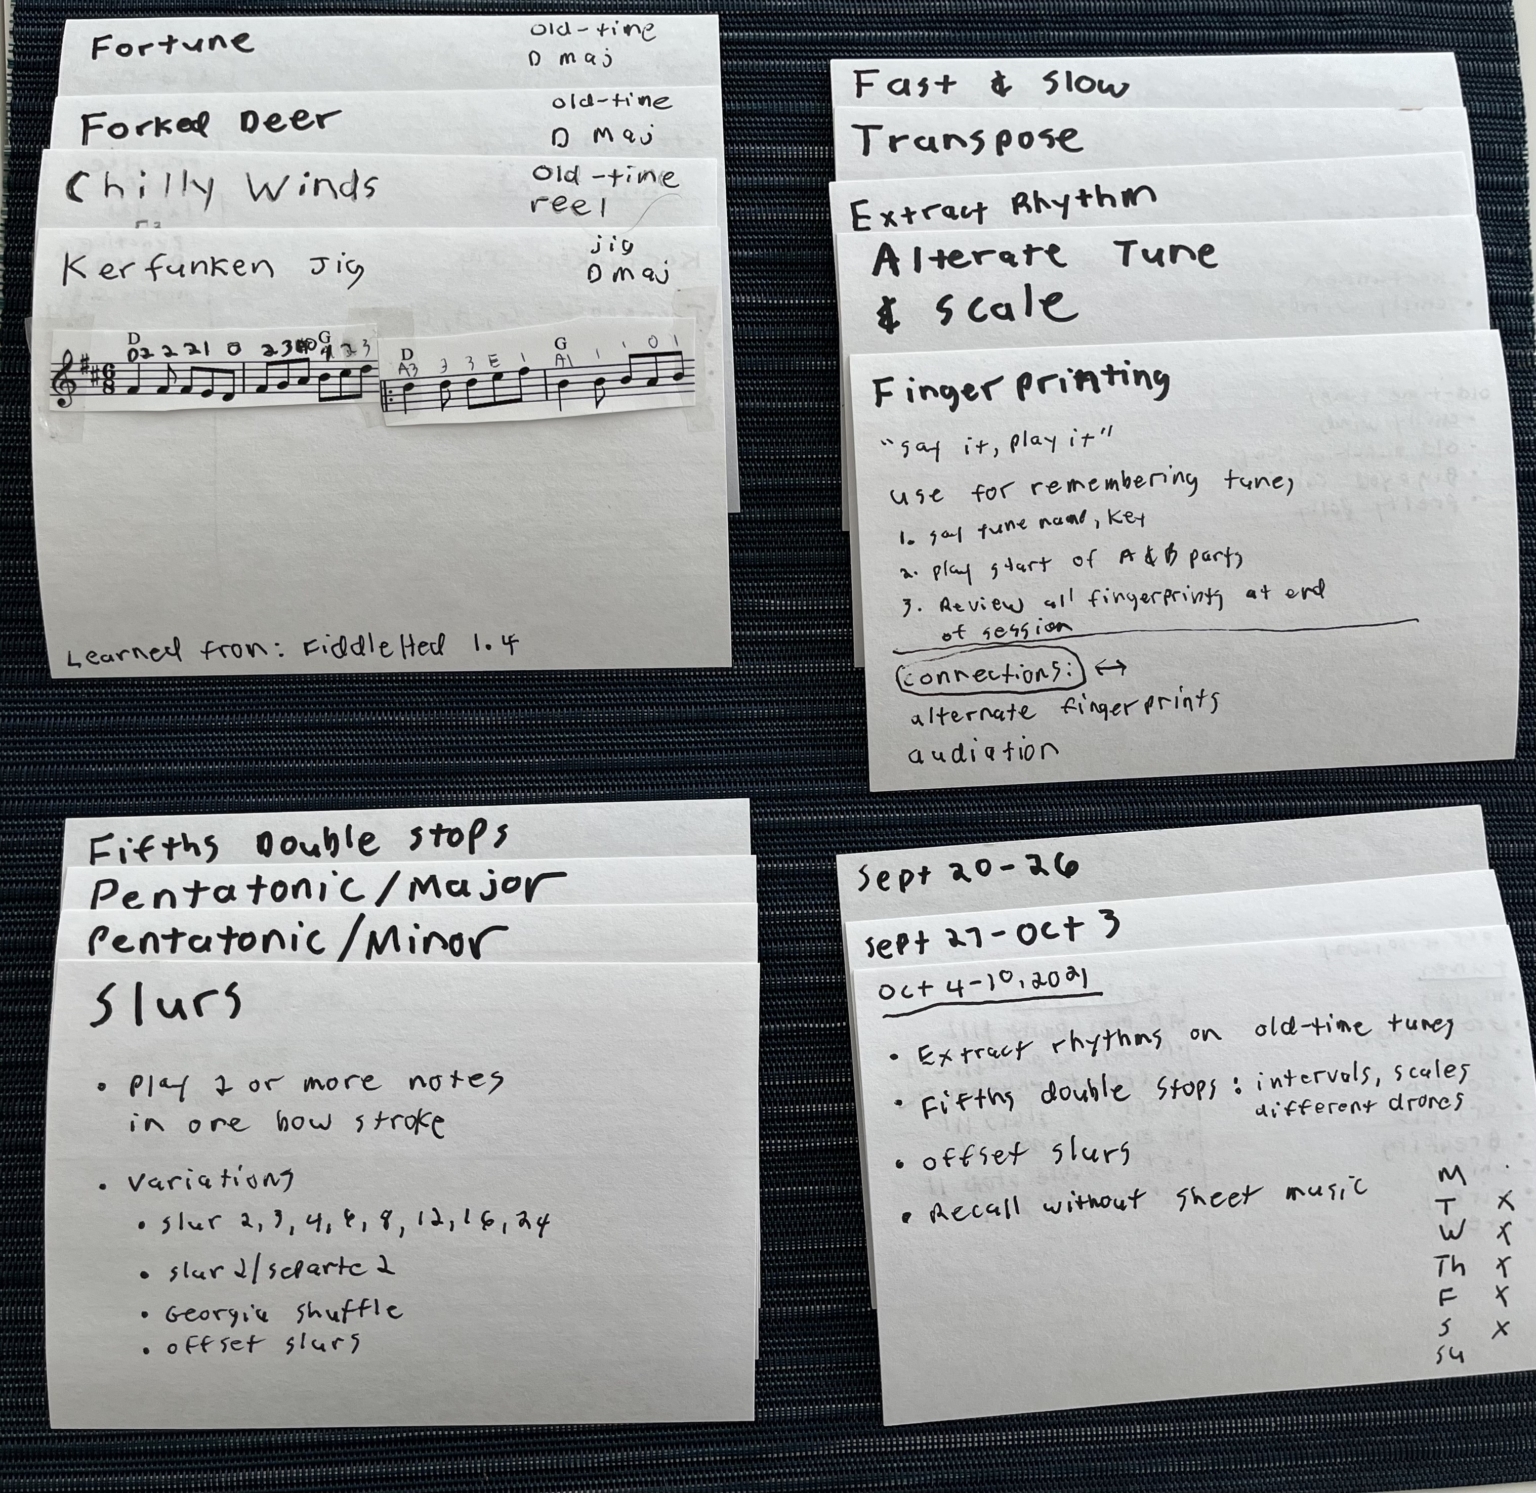 Fortune
old-time
D maj
Forked Deer
old-time
D Maj
Chilly Winds
old-time
reel
Kerfunken Jig
jig
D maj
D G D G
D2 2 21 0 2 3 3 A3 3 3 E 1 A1 1 1 0 1
Learned from: FiddleHed 1.4
Fast & Slow
Transpose
Extract Rhythm
Alterate Tune
& Scale
Fingerprinting
"say it, play it"
use for remembering tunes
1. say tune name, key
2. play start of A & B parts
3. Review all fingerprints at end
of session
connections: ↔
alternate fingerprints
audiation
Fifths Double Stops
Pentatonic/Major
Pentatonic/Minor
Slurs
• Play 2 or more notes
in one bow stroke
• Variations
• slur 2, 3, 4, 6, 8, 12, 16, 24
• slur 2/separte 2
• Georgia shuffle
• offset slurs
Sept 20-26
Sept 27-Oct 3
Oct 4-10, 2021
• Extract rhythms on old-time tunes
• Fifths double stops: intervals, scales
different drones
• offset slurs
• Recall without sheet music
M
T X
W X
Th X
F X
S X
Su